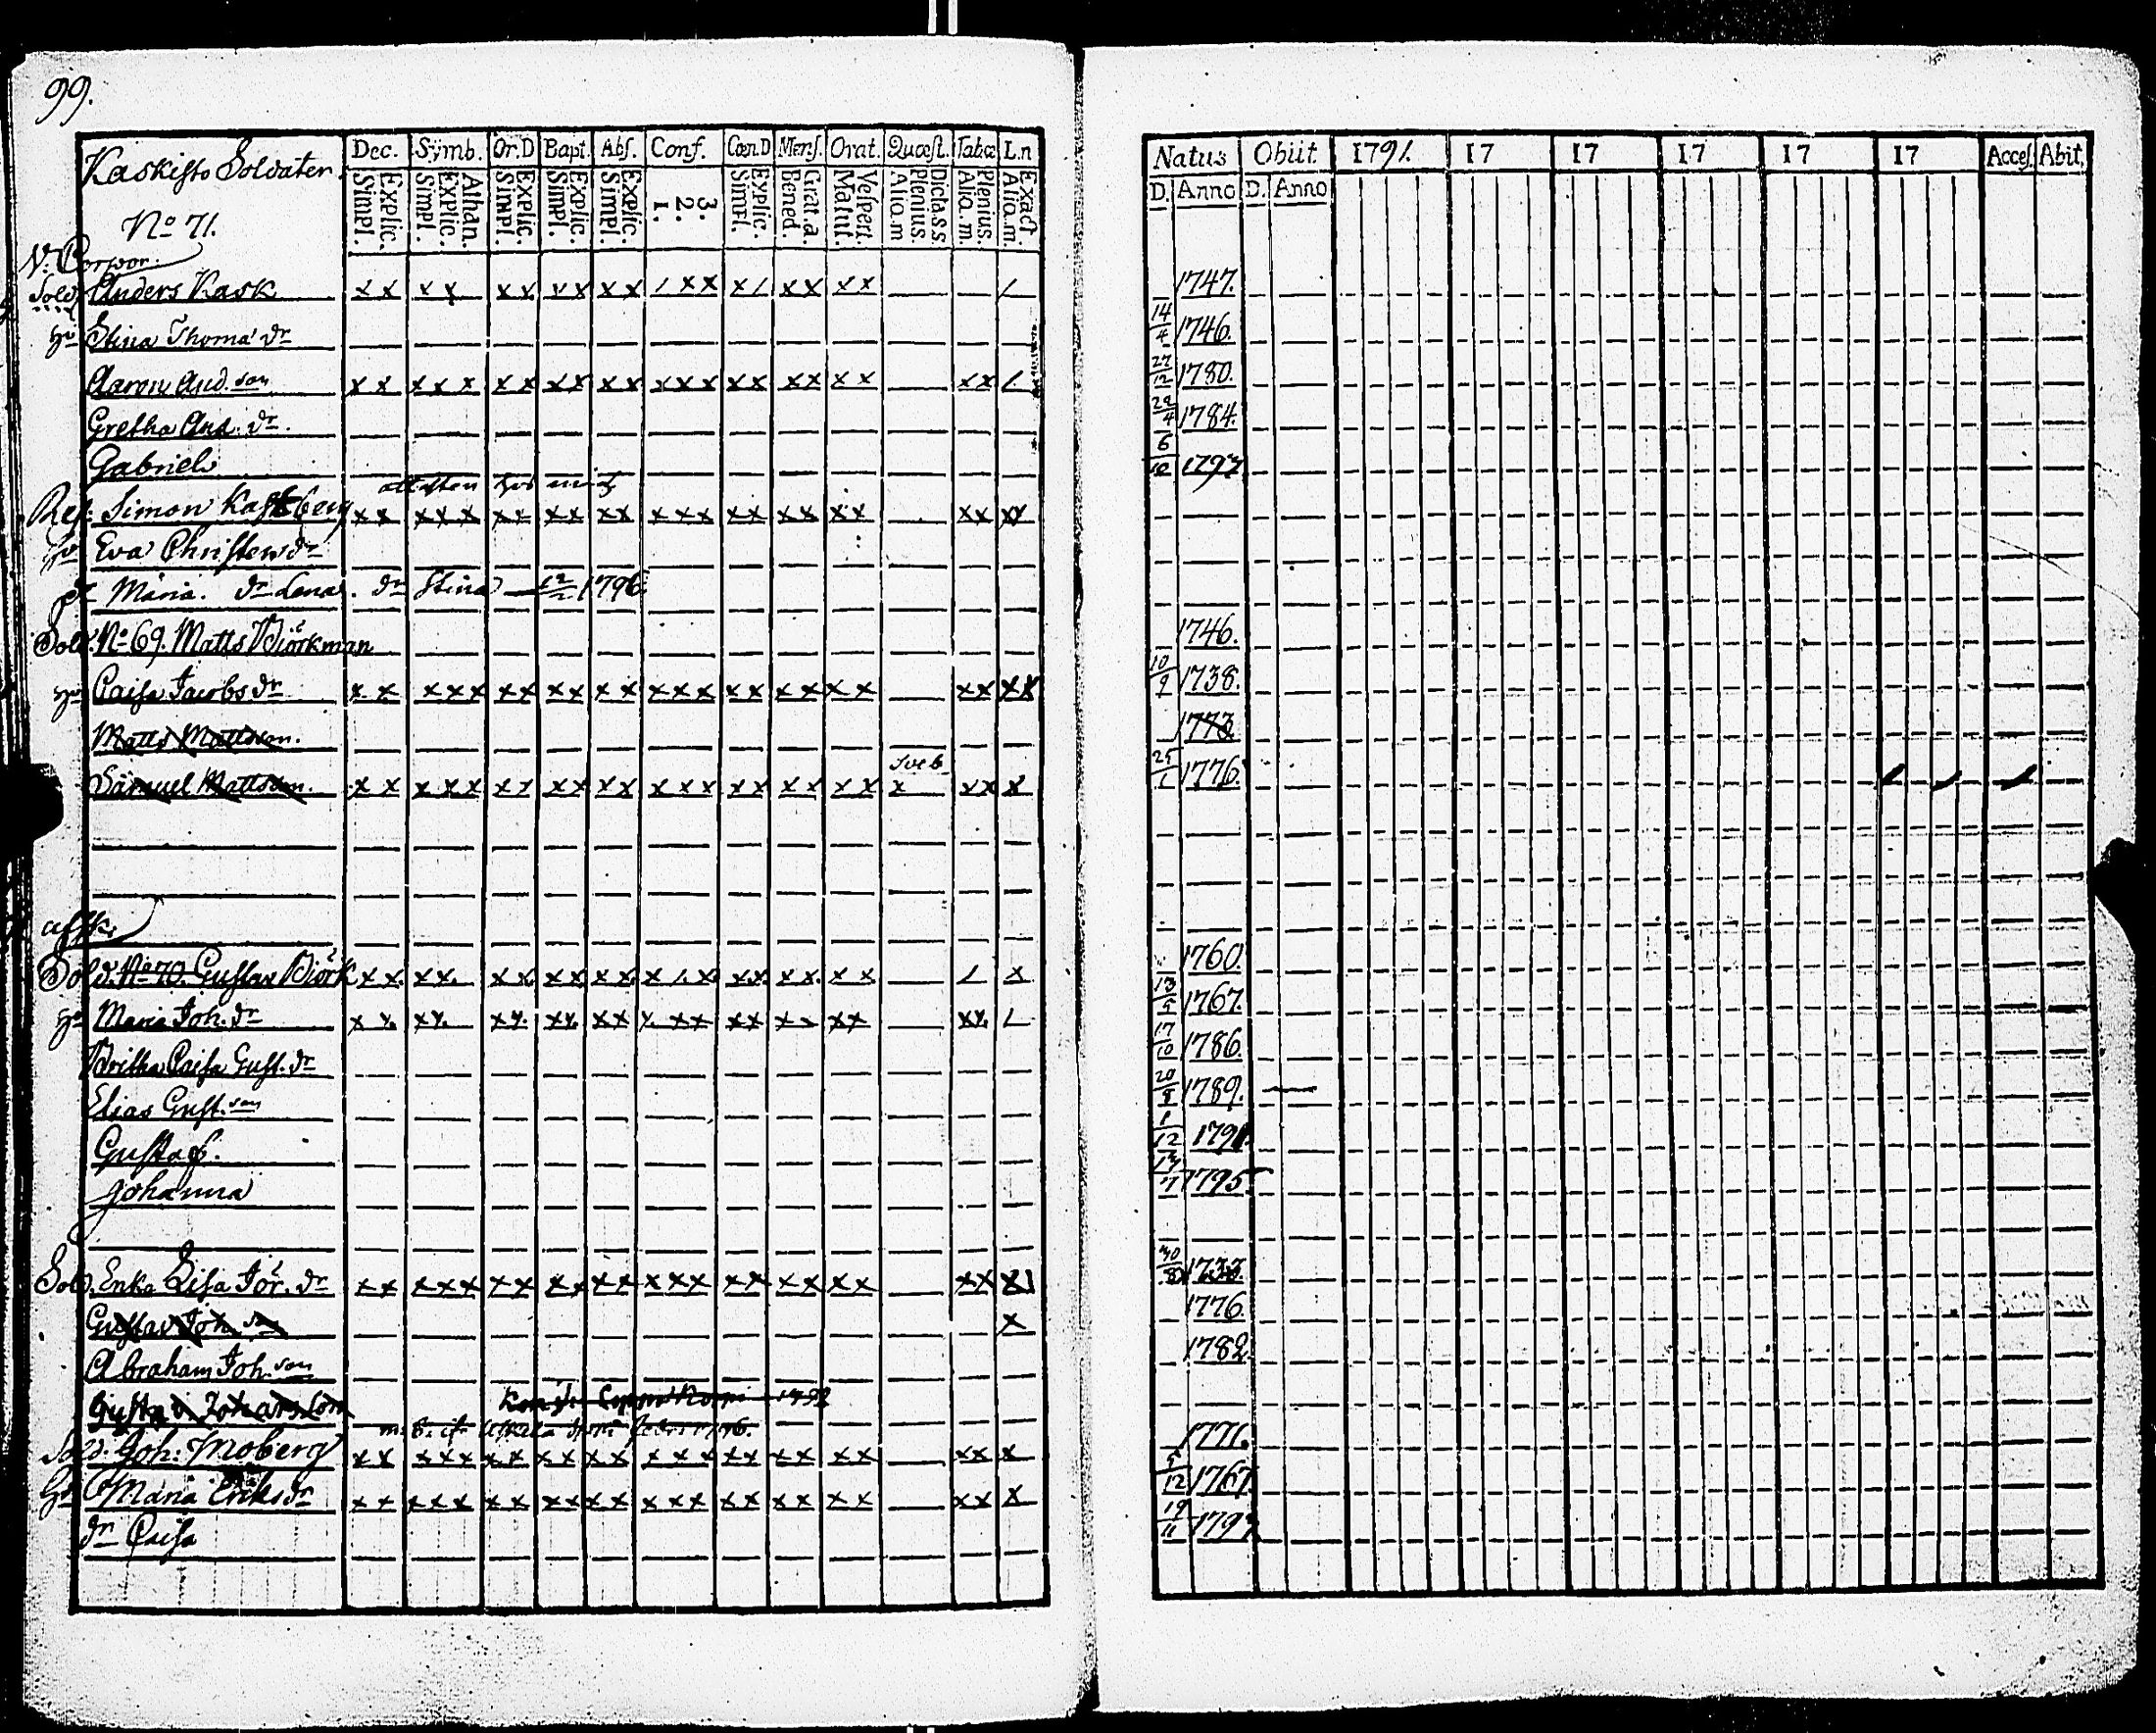 99.
Kaskisto Soldater.
Dec. Symb. Or.D Bapt. Abs. Conf. Cœn.D Mens. Orat. Quæst. Tabæ L.n
Simpl. Explic. Simpl. Explic. Athan. Simpl. Explic. Simpl. Explic. Simpl. Explic. 1. 2. 3. Simpl. Explic. Bened. Grat.a. Matut. Vespert. Alio.m Plenius. Dicta.s.s. Alio.m. Plenius. Alio.m. Exact.
No 71.
V. Corpor.
Sold. Anders Kask
hu Stina Thoma dr
Aaron And. son
Gretha And. dr.
Gabriel
Simon Kastberg
hu Eva Christers dr
dr Maria. dr Lena. dr Stina 1796
Sold. No 69. Matts Björkman
hu Caisa Jacobs dr
Matts Mattsson.
Sveb
Samuel Mattsson.
afsk.
Sold. No 70. Gustav Björk
hu Maria Joh. dr
Britha Caisa Gust. dr
Elias Gust. son
Gustaf.
Johanna
Sold. Enka Lisa Jör. dr
Gustav Joh. son
Abraham Joh. son
Gustav Johansson
Sold. Joh: Moberg
hu Maria Eriks dr
dr Caisa
Natus Obiit. 1791. 17 17 17 17 17 Acces. Abit.
D. Anno D. Anno
1747.
14/4 1746.
27/12 1780.
22/4 1784.
6/10 1797
1746.
10/9 1738.
1773
25/1 1776.
1760.
13/5 1767.
17/10 1786.
20/8 1789.
1/12 1791.
1795
30/8 1733.
1776.
1782
1771.
5/12 1767
19/11 1797